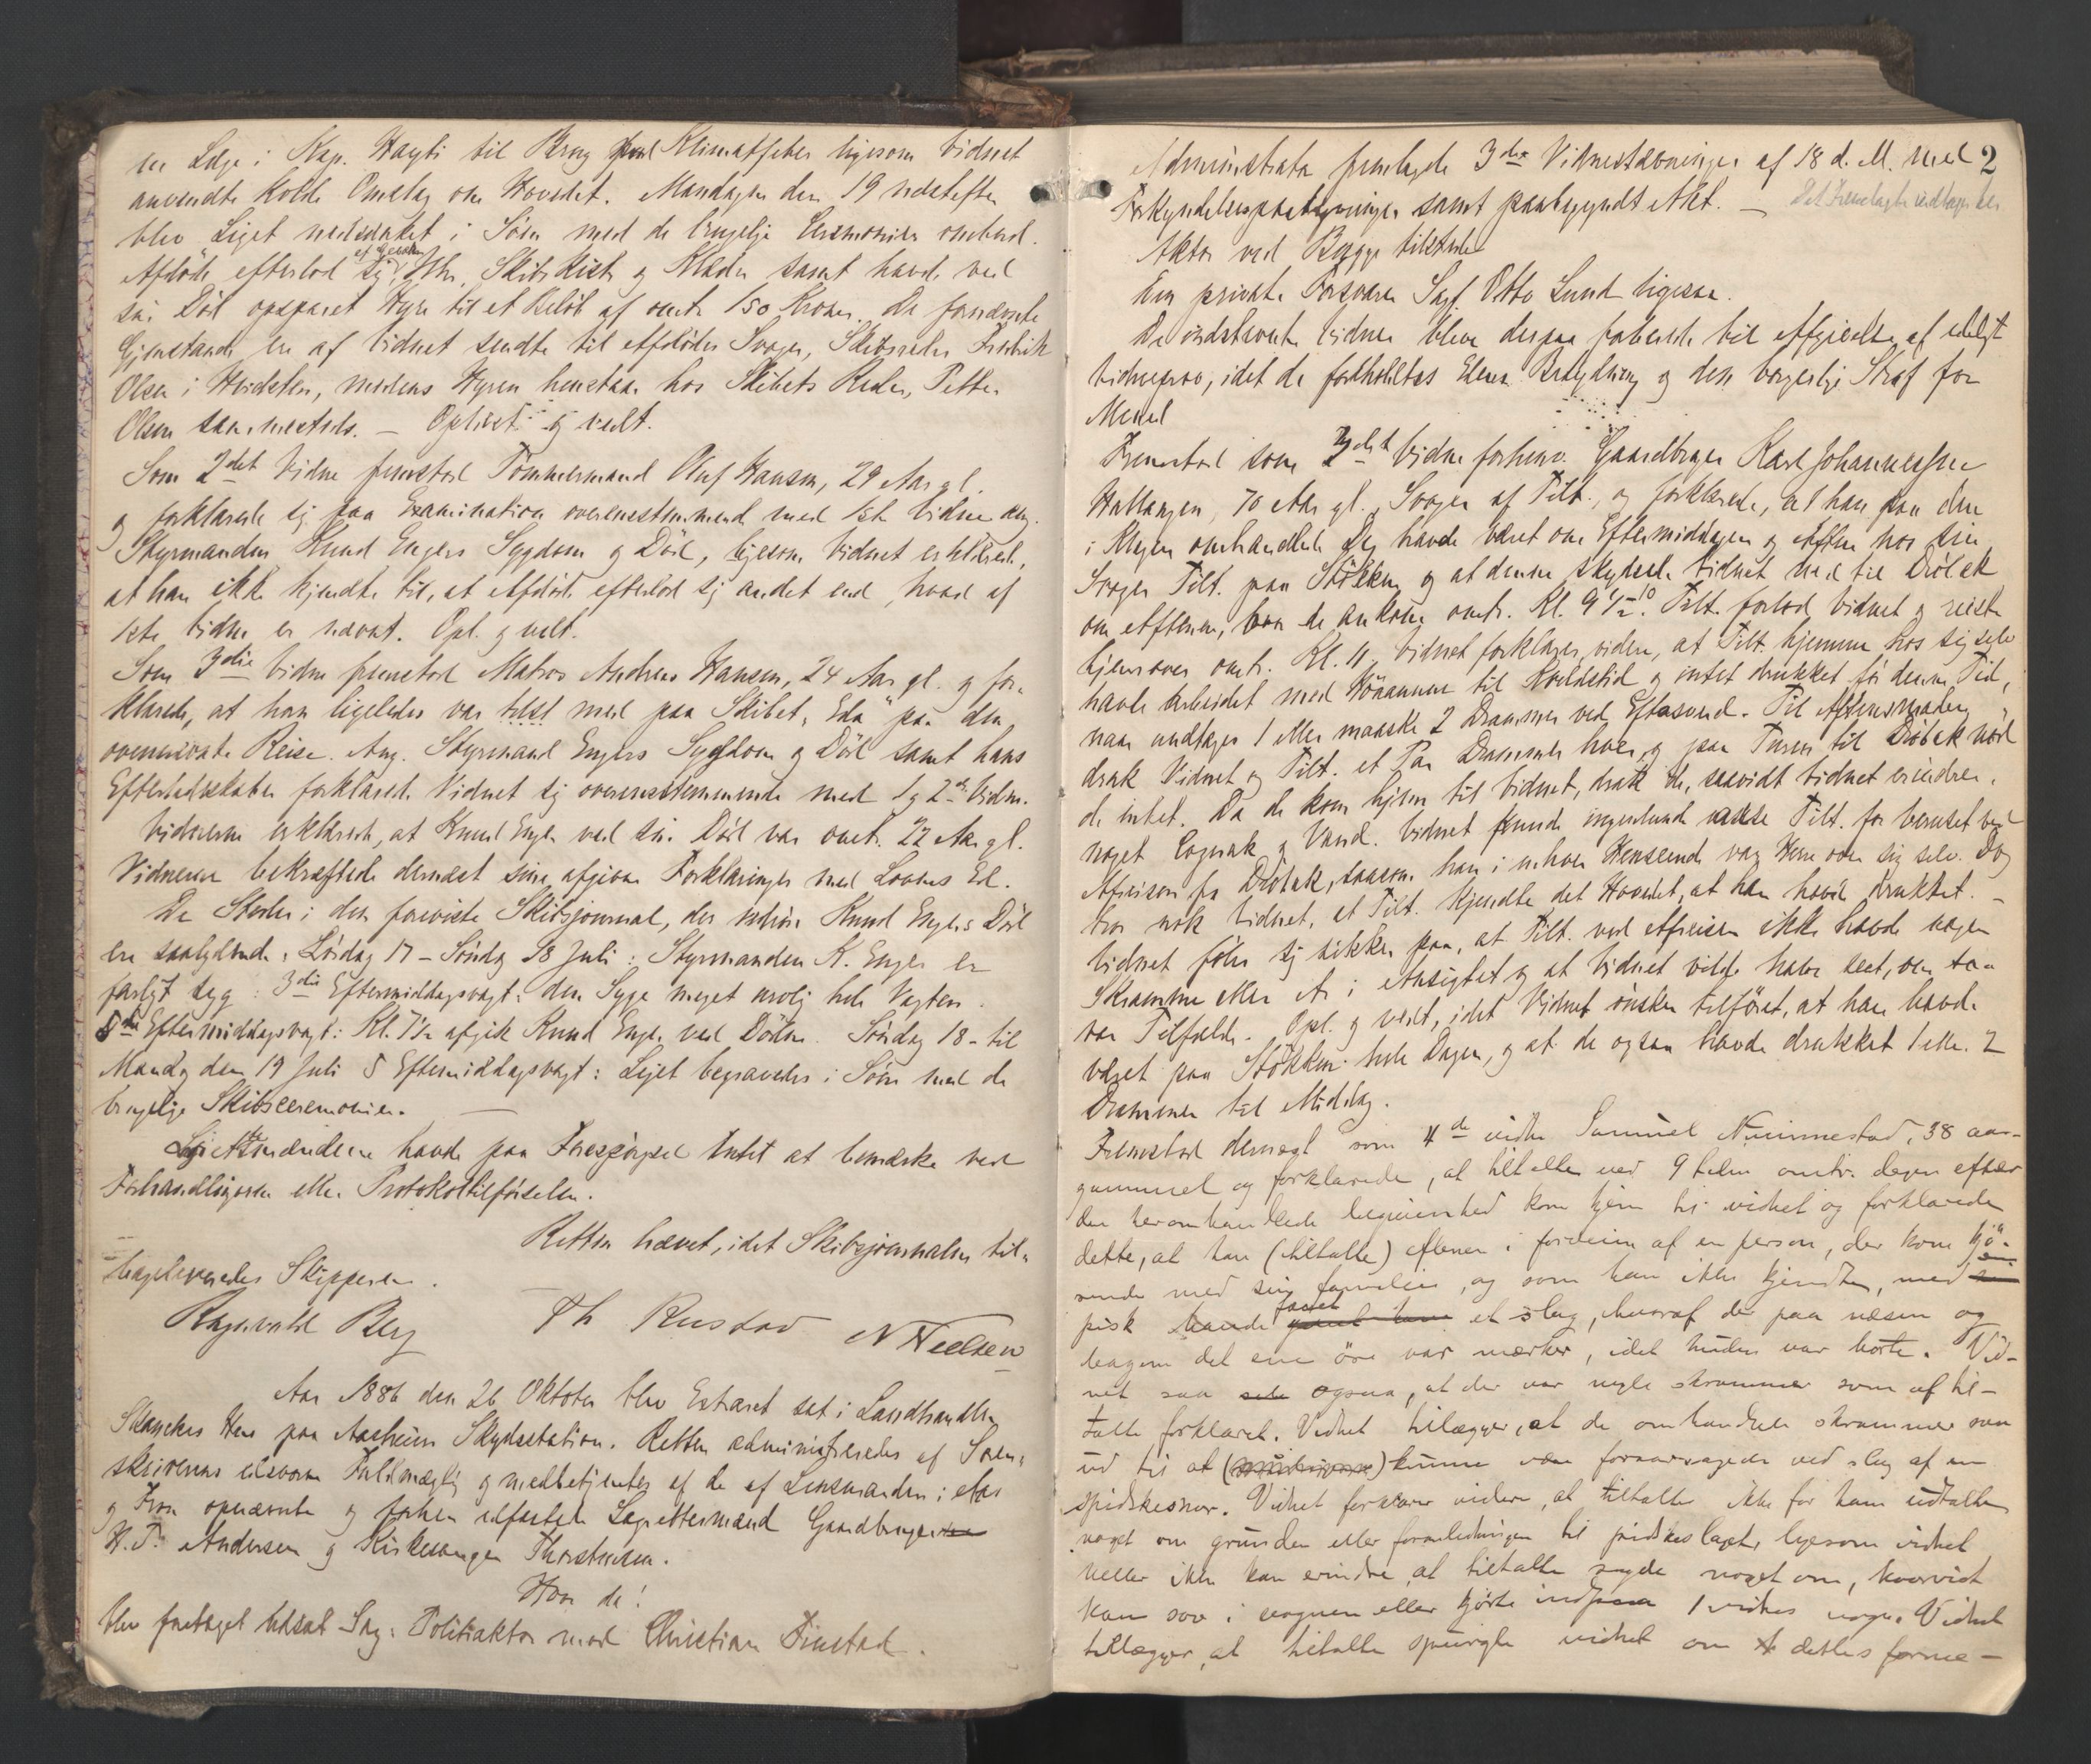 en Læge i Kap. Hayti til Brug mod Klimatfeber ligesom Vidnet
anvendte kolde Omslag om Hovedet. Mandagen den 19 næstefter
blev Liget nedsænket i Søen med de brugelige Ceremonier ombord.
Afdøde efterlod sig et Lommeuhr, Skibskiste og Klæder samt havde ved
sin Død opsparet Hyre til et Beløb af omtr. 150 Kroner. De fornævnte
Gjenstande er af Vidnet sendte til Afdødes Svoger, Skibsreder Fredrik
Olsen i Hvidsten, medens Hyren henstaar hos Skibets Reder, Petter
Olsen sammesteds. — Oplæst og vedt.
Som 2det Vidne fremstod Tømmermand Oluf Hansen, 29 Aar gl.
og forklarede sig paa Examination overensstemmende med 1ste Vidne ang.
Styrmanden Knud Engers Sygdom og Død, ligesom Vidnet erklærede,
at han ikke kjendte til, at Afdøde efterlod sig andet end, hvad af
1ste Vidne er nævnt. Opl. og vedt.
Som 3die Vidne fremstod Matros Andreas Hansen, 24 Aar gl. og for-
klarede, at han ligeledes var tilst med paa Skibet "Eda" paa den
ovennævnte Reise. Ang. Styrmand Engers Sygdom og Død samt hans
Efterladenskaber forklarede Vidnet sig overensstemmende med 1 og 2det Vidne.
Vidnerne erklærede, at Knud Enger ved sin Død var omtr. 22 Aar gl.
Vidnerne bekræftede dernæst sine afgivne Forklaringer med Lovens Ed.
De Steder i den foreviste Skibsjournal, der vedrøre Knud Engers Død
ere saalydende: Lørdag 17 – Søndag 18 Juli: Styrmanden K. Enger er
farligt syg: 3die Eftermiddagsvagt: den Syge meget urolig hele Vagten.
5te Eftermiddagsvagt: Kl. 7½ afgik Knud Enger ved Døden. Søndag 18 – til
Mandag den 19 Juli 5 Eftermiddagsvagt: Liget begravedes i Søen med de
brugelige Skibsceremonier.
Lagrettesmændene havde paa Forespørgsel Intet at bemærke ved
Forhandlingerne eller Protokoltilførselen.
Retten hævet, idet Skibsjournalen til-
bageleveredes Skipperen.
Ragnvald Berg Th Rustad N Neelsen
Aar 1886 den 26 Oktober blev Extraret sat i Landhandler
Skanckes Hus paa Aasheim Skydsstation. Retten administreredes af Soren-
skriverens edsvorne Fuldmægtig og medbetjentes af de af Lensmanden i Aas
og Kroer opnævnte og forhen edfæstede Lagrettesmænd Gaardbruger
H. T. Andersen og Kirkesanger Thorstensen.
Hvor da:
blev foretaget udsat Sag: Politiaktor mod Christian Finstad.
2
Administrator fremlagde 3de Vidnestævninger af 18 d. M. med
Forkyndelsespaategninger samt paabegyndt Akt. — Det Fremlagte vedtages her
Aktor ved Brygge tilstede
Den private Forsvarer Sagf. Otto Lund ligesaa.
De indstævnte Vidner bleve derpaa foberedte til Afgivelse af edeligt
Vidneprov, idet de foreholdtes Edens Betydning og den borgerlige Straf for
Mened
Fremstod som 3die Vidne forhenv. Gaardbruger Karl Johannessen
Hallangen, 70 Aar gl., Svoger af Tilt., og forklarede, at han paa den
i Klagen omhandlede Dag havde været om Eftermiddagen og Aften hos sin
Svoger Tilt. paa Støkken og at denne skydsede Vidnet ned til Drøbak
om Aftenen, hvor de ankom omtr. Kl. 9½–10. Tilt. forlod Vidnet og reiste
hjemover omtr. Kl. 11. Vidnet forklarer videre, at Tilt. hjemme hos sig selv
havde arbeidet med Høaannen til Kveldstid og intet drukket før denne Tid,
naar undtages 1 eller maaske 2 Drammer ved Eftasverd. Til Aftensmaden
drak Vidnet og Tilt. et Par Drammer hver, og paa Turen til Drøbak nød
de intet. Da de kom hjem til Vidnet, drak de, saavidt Vidnet erindrer,
noget Cognak og Vand. Vidnet kunde ingenlunde ansee Tilt. for beruset ved
Afreisen fra Drøbak, saasom han i enhver Henseende var Herre over sig selv. Dog
tror nok Vidnet, at Tilt. kjendte det i Hovedet, at han havde drukket. —
Vidnet føler sig sikker paa, at Tilt. ved Afreisen ikke havde nogen
Skramme eller Ar i Ansigtet og at Vidnet vilde have seet, om saa
var Tilfælde. Opl. og vedt., idet Vidnet ønsker tilføiet, at han havde
været paa Støkken hele Dagen, og at de ogsaa havde drukket 1 eller 2
Drammer til Middag.
Fremstod dernæst som 4de vidne Samuel Nummestad, 38 aar
gammel og forklarede, at tiltalte ved 9 tiden omtr. dagen efter
den heromhandlede begivenhed kom hjem til vidnet og forklarede
dette, at han (tiltalte) aftenen i forveien af en person, der kom kjø-
rende med sin familie, og som han ikke kjendte, med en
pisk havde faaet et slag, hvoraf der paa næsen og
bagom det ene øre var mærker, idet huden var borte. Vid-
net saa ogsaa, at der var nogle skrammer som af til-
talte forklaret. Vidnet tilægger, at de omhandlede skrammer saa
ud til at kunne være foraarsagede ved slag af en
pidskesnor. Vidnet forklarer videre, at tiltalte ikke for ham udtalte
noget om grunden eller foranledningen til pidskeslaget, ligesom vidnet
heller ikke kan erindre, at tiltalte sagde noget om, hvorvidt
han sov i vognen eller kjørte ind vognen. Vidnet
tillægger, at tiltalte spurgte vidnet om dettes forme-